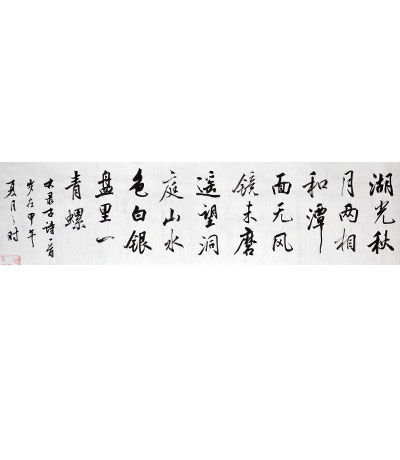 湖光秋
月两相
和潭
面无风
镜未磨
遥望洞
庭山水
色白银
盘里一
青螺
录古诗一首
岁在甲午
夏月之时